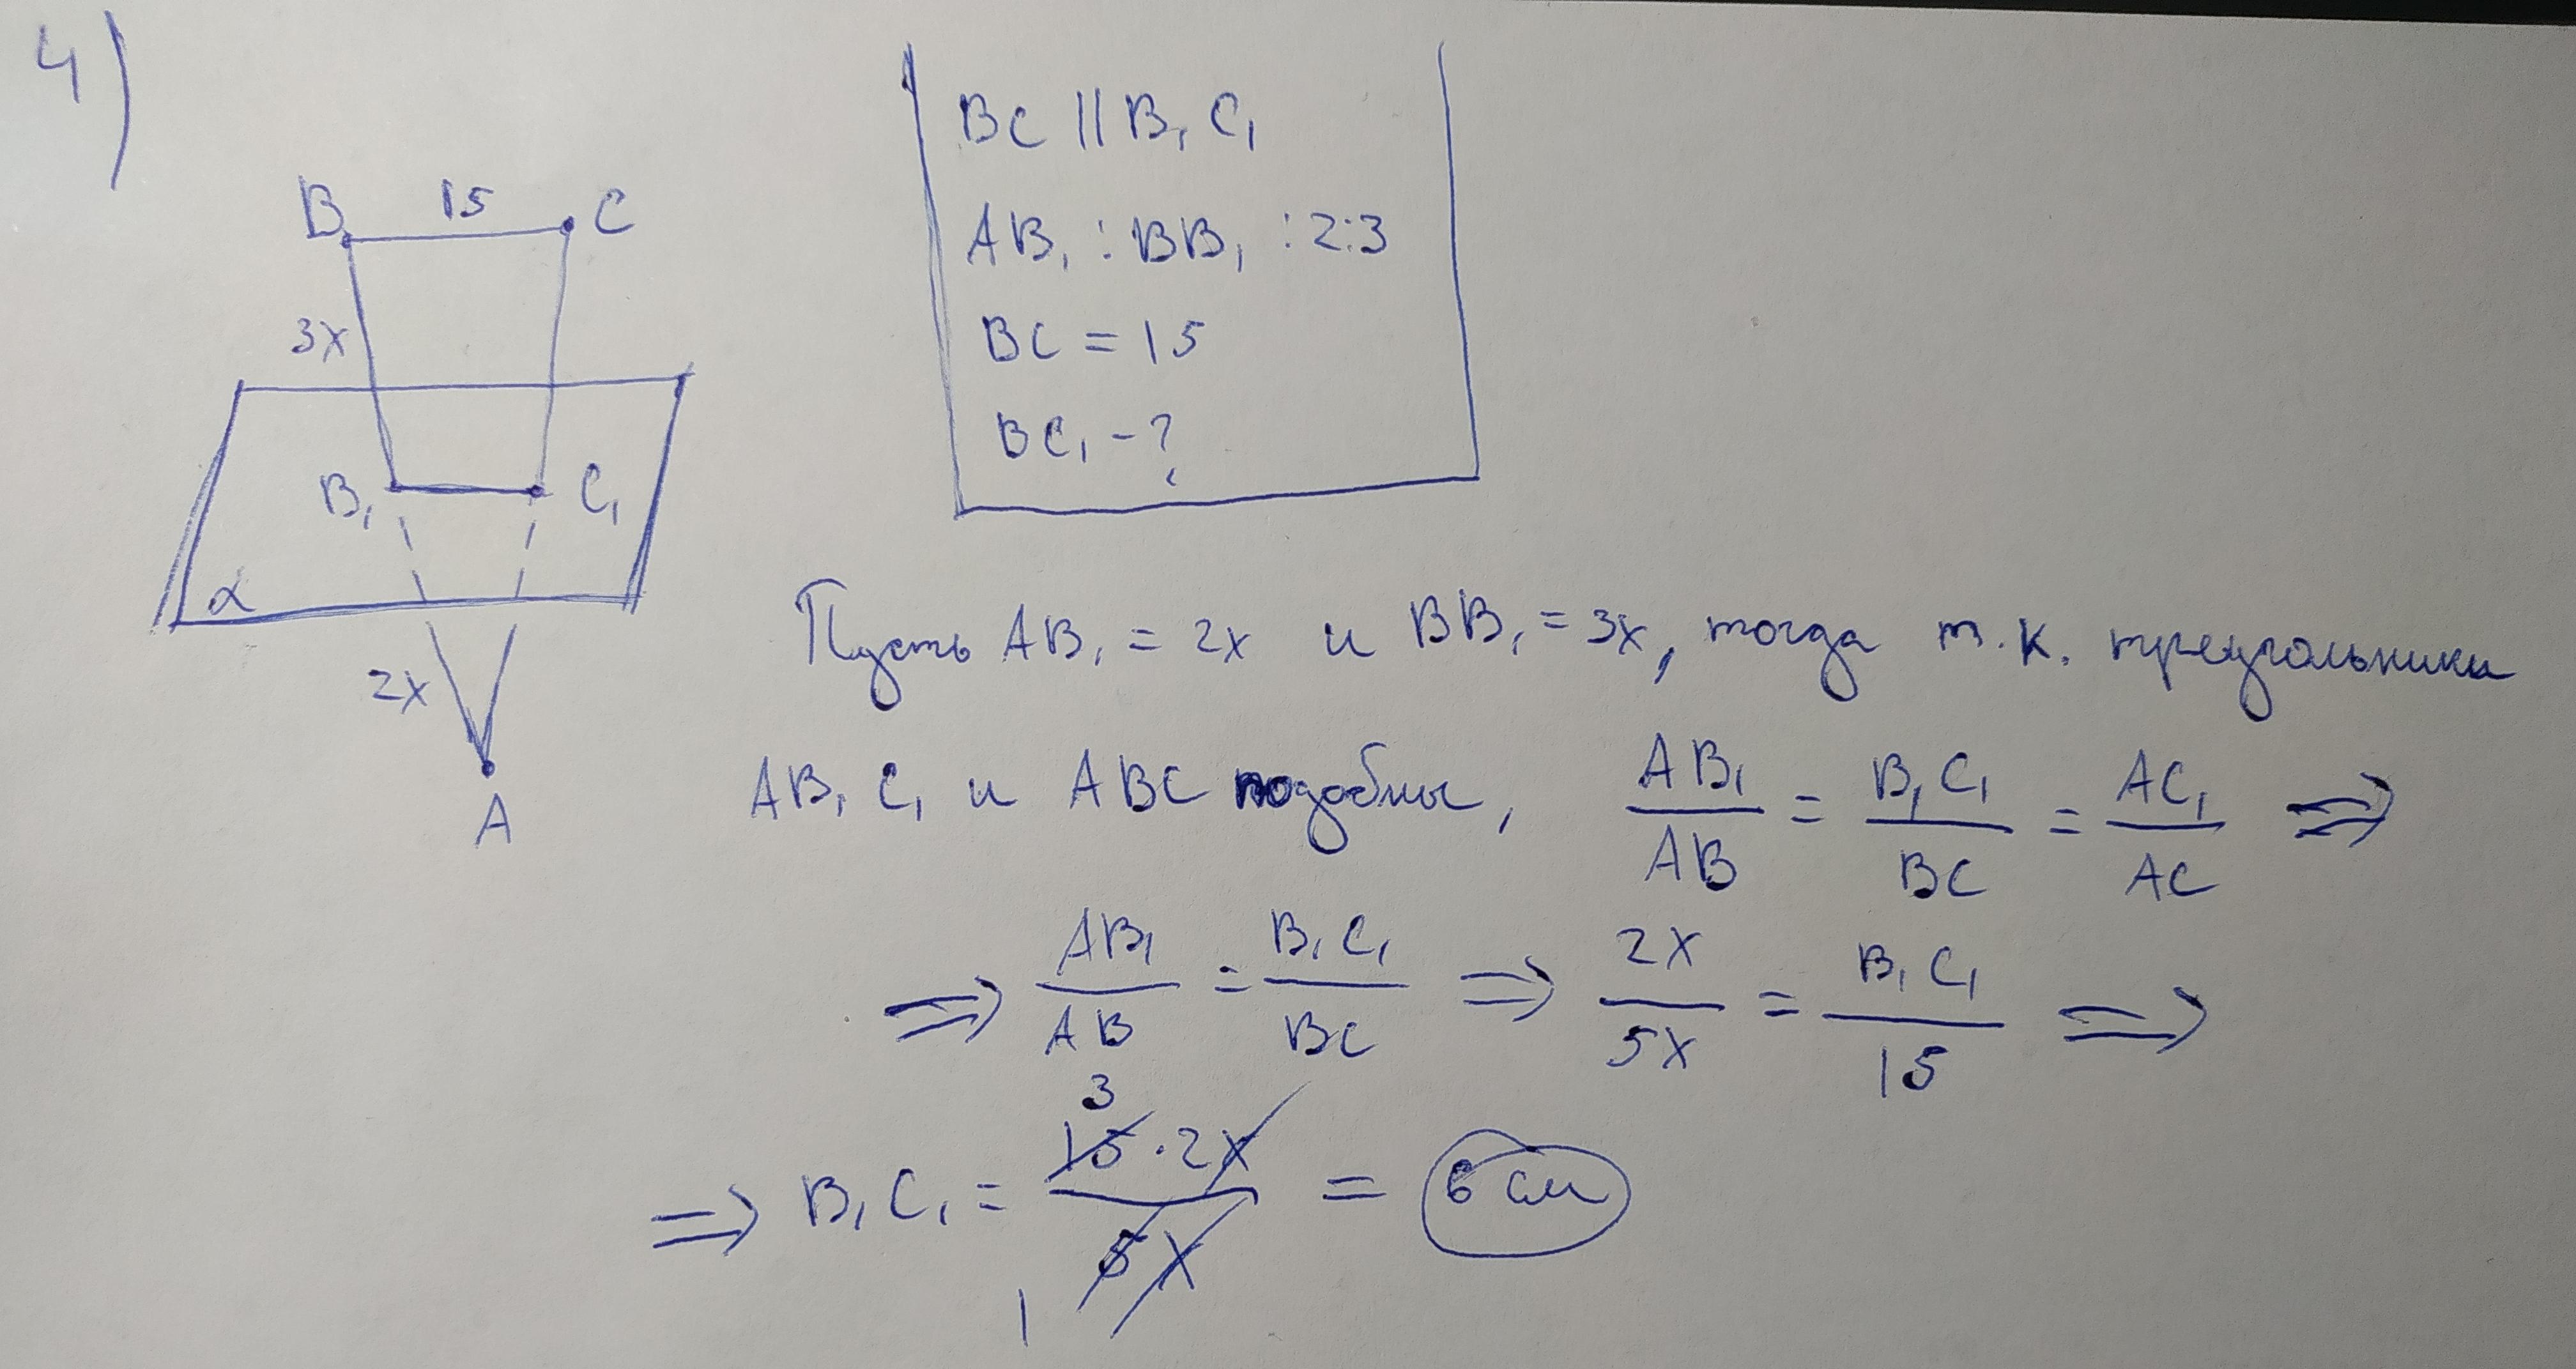 4)
B 15 C
3x
B₁ C₁
α
2x
A
BC || B₁C₁
AB₁ : BB₁ : 2:3
BC = 15
BC₁ - ?
Пусть AB₁ = 2x и BB₁ = 3x, тогда т.к. треугольники
AB₁C₁ и ABC подобны, AB₁/AB = B₁C₁/BC = AC₁/AC ⇒
⇒ AB₁/AB = B₁C₁/BC ⇒ 2x/5x = B₁C₁/15 ⇒
3
⇒ B₁C₁ = 15·2x/5x = 6 см
1